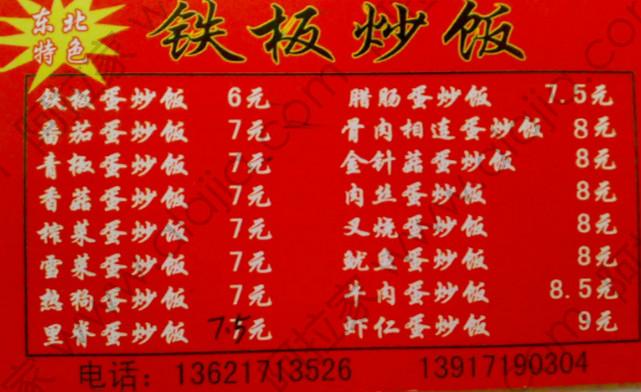 东北
特色
铁板炒饭
铁板蛋炒饭 6元 腊肠蛋炒饭 7.5元
番茄蛋炒饭 7元 骨肉相连蛋炒饭 8元
青椒蛋炒饭 7元 金针菇蛋炒饭 8元
香菇蛋炒饭 7元 肉丝蛋炒饭 8元
榨菜蛋炒饭 7元 叉烧蛋炒饭 8元
雪菜蛋炒饭 7元 鱿鱼蛋炒饭 8元
热狗蛋炒饭 7元 牛肉蛋炒饭 8.5元
里脊蛋炒饭 7.5元 虾仁蛋炒饭 9元
电话：13621713526 13917190304